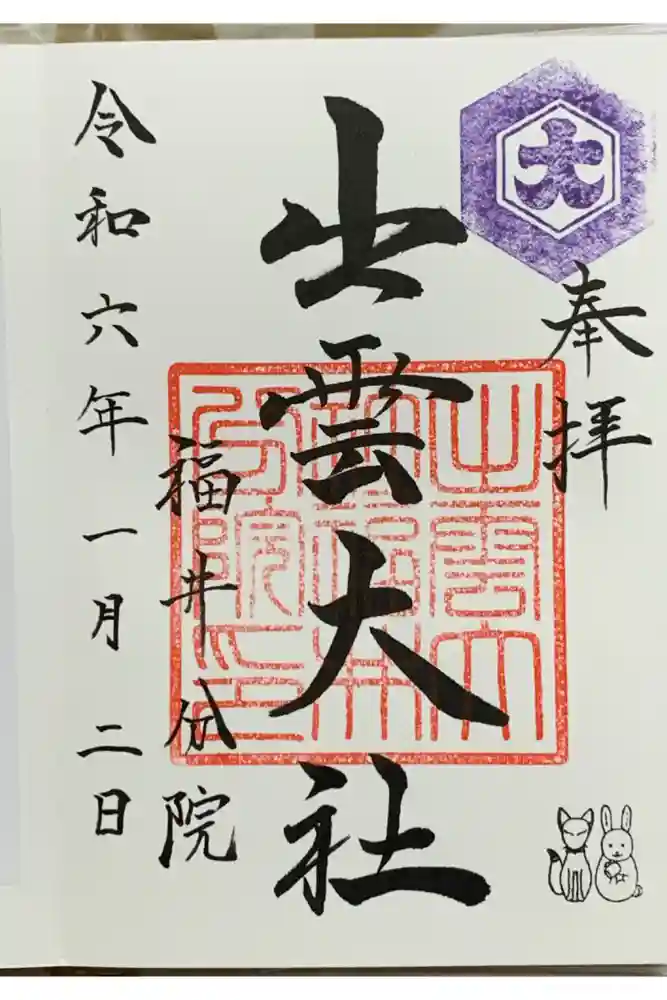 奉拝
大
出雲大社
出雲大社福井分院印
福井分院
令和六年一月二日